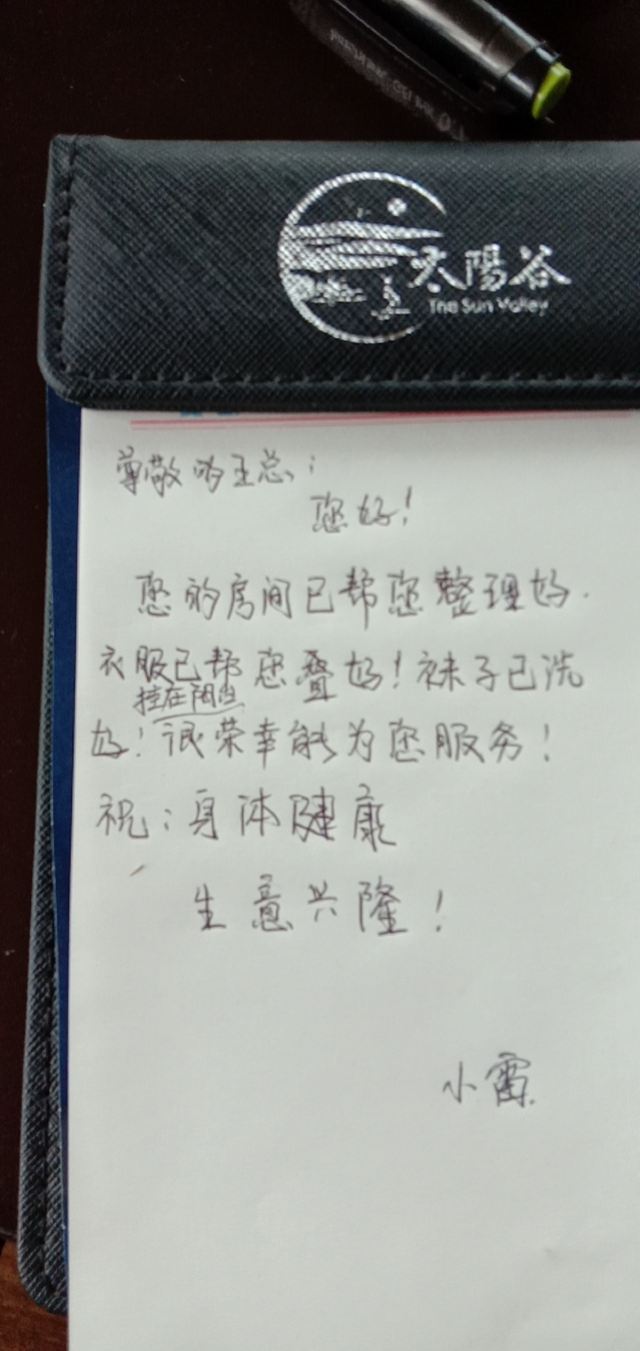 太陽谷
The Sun Valley
尊敬的王总：
您好！
您的房间已帮您整理好.
衣服已帮您叠好！袜子已洗
挂在阳台
好！很荣幸能为您服务！
祝：身体健康
生意兴隆！
小雷.